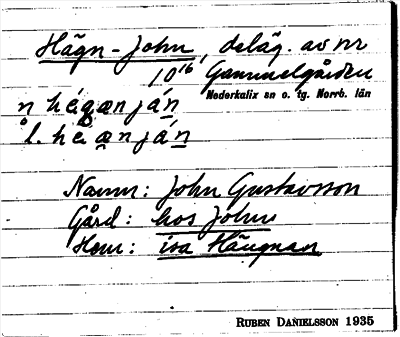 Hägn-John, deläg. av nr
10¹⁶ Gammelgården
Nederkalix sn o. tg. Norrb. län
n häganján
l. håanján
Namn: John Gustavsson
Gård: hos Johns
Hem: isa Häugnan
RUBEN DANIELSSON 1935